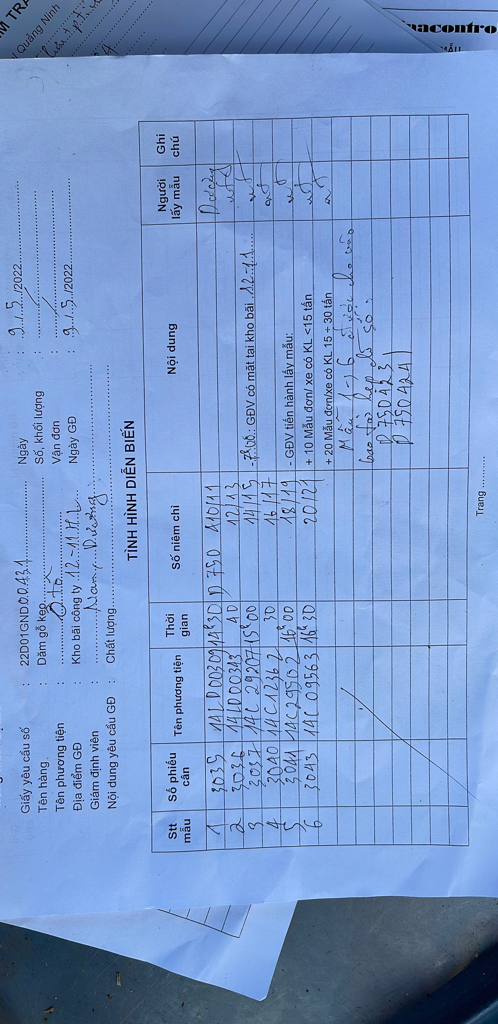 M TRA
Quảng Ninh
nacontro
MẪU
Giấy yêu cầu số : 22D01GND00431 Ngày : 9/5/2022
Tên hàng : Dăm gỗ keo Số, khối lượng :
Tên phương tiện : Ôtô Vận đơn :
Địa điểm GĐ : Kho bãi công ty 12-11 H.L Ngày GĐ : 9/5/2022
Giám định viên : Nam, Dương
Nội dung yêu cầu GĐ : Chất lượng
TÌNH HÌNH DIỄN BIẾN
Stt mẫu Số phiếu cân Tên phương tiện Thời gian Số niêm chì Nội dung Người lấy mẫu Ghi chú
1 3035 14LD00309 14h30 D750 410/11 Dương
2 3036 14LD00343 40 12/13
3 3037 14C 29207 15h00 14/15 - GĐV có mặt tại kho bãi 12-11
4 3040 14C 12362 30 16/17
5 3041 14C 29562 16h00 18/19 - GĐV tiến hành lấy mẫu:
6 3043 14C 09563 16h30 20/21 + 10 Mẫu đơn/ xe có KL <15 tấn
+ 20 Mẫu đơn/xe có KL 15 ÷ 30 tấn
Mẫu 1→6 được cho vào
bao tải kẹp chì số:
D750423
D750424
Trang